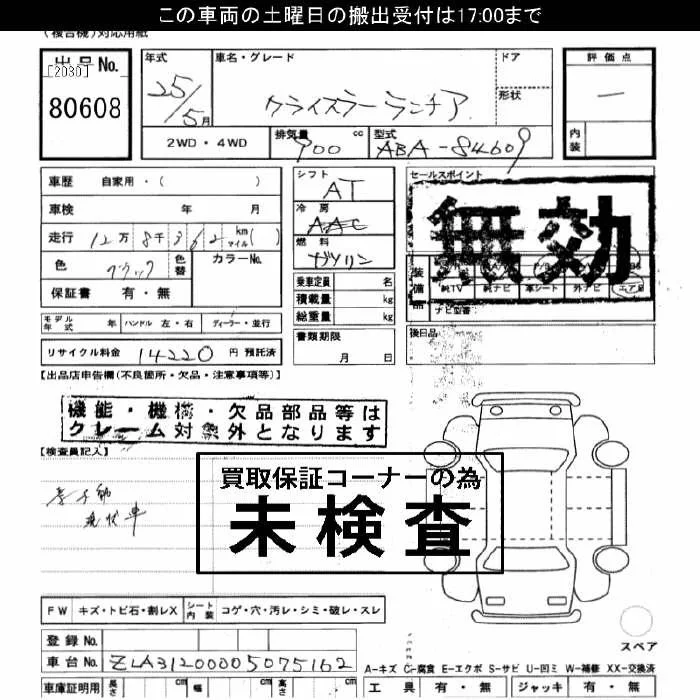 この車両の土曜日の搬出受付は17:00まで
(複合機)対応用紙
出品No.
[2030]
80608
年式 25/5月
車名・グレード クライスラー ランチア
ドア
形状
評価点
内装
2WD・4WD
排気量 900 cc
型式 ABA-84609
車歴 自家用・( )
車検 年 月
走行 12万8千362 kmマイル( )
色 ブラック 色替 カラーNo.
保証書 有・無
シフト AT
冷房 AAC
燃料 ガソリン
乗車定員 名
積載量 kg
総重量 kg
書類期限
月 日
セールスポイント
無効
装備品
純TV 純ナビ 革シート 外ナビ エアB
ナビ型番
後日品
モデル年式 年 ハンドル 左・右 ディーラー・並行
リサイクル料金 14220 円 預託済
【出品店申告欄(不良箇所・欠品・注意事項等)】
機能・機構・欠品部品等は
クレーム対象外となります
【検査員記入】
現状車
買取保証コーナーの為
未検査
FW キズ・トビ石・割レX シート内装 コゲ・穴・汚レ・シミ・破レ・スレ
登録No.
車台No. ZLA31200005075162
スペア
A-キズ C-腐食 E-エクボ S-サビ U-凹ミ W-補修 XX-交換済
車庫証明用 長さ cm 幅 cm 高さ cm
工具 有・無 ジャッキ 有・無